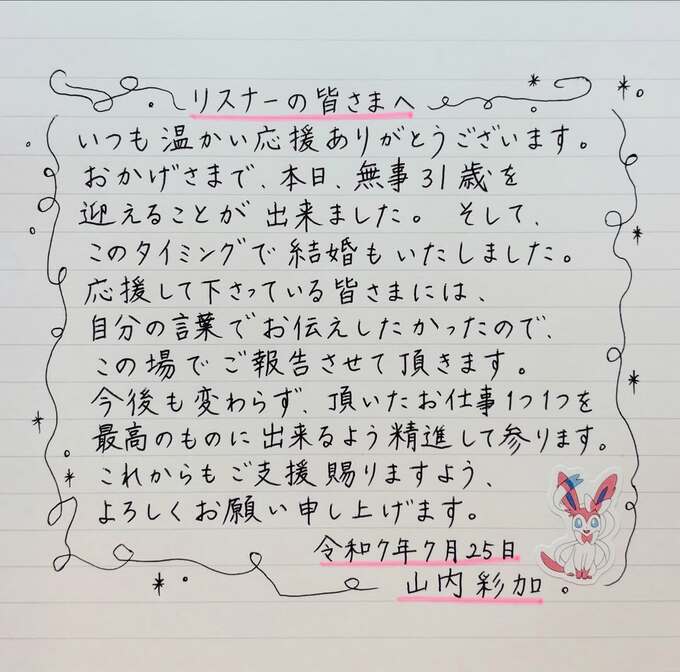 リスナーの皆さまへ
いつも温かい応援ありがとうございます。
おかげさまで、本日、無事31歳を
迎えることが出来ました。 そして、
このタイミングで結婚もいたしました。
応援して下さっている皆さまには、
自分の言葉でお伝えしたかったので、
この場でご報告させて頂きます。
今後も変わらず、頂いたお仕事1つ1つを
最高のものに出来るよう精進して参ります。
これからもご支援賜りますよう、
よろしくお願い申し上げます。
令和7年7月25日
山内彩加